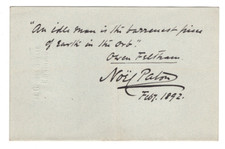 "An idle man is the barrenest piece
of Earth in the Orb."
Owen Feltham
Noël Paton
Feby. 1892.